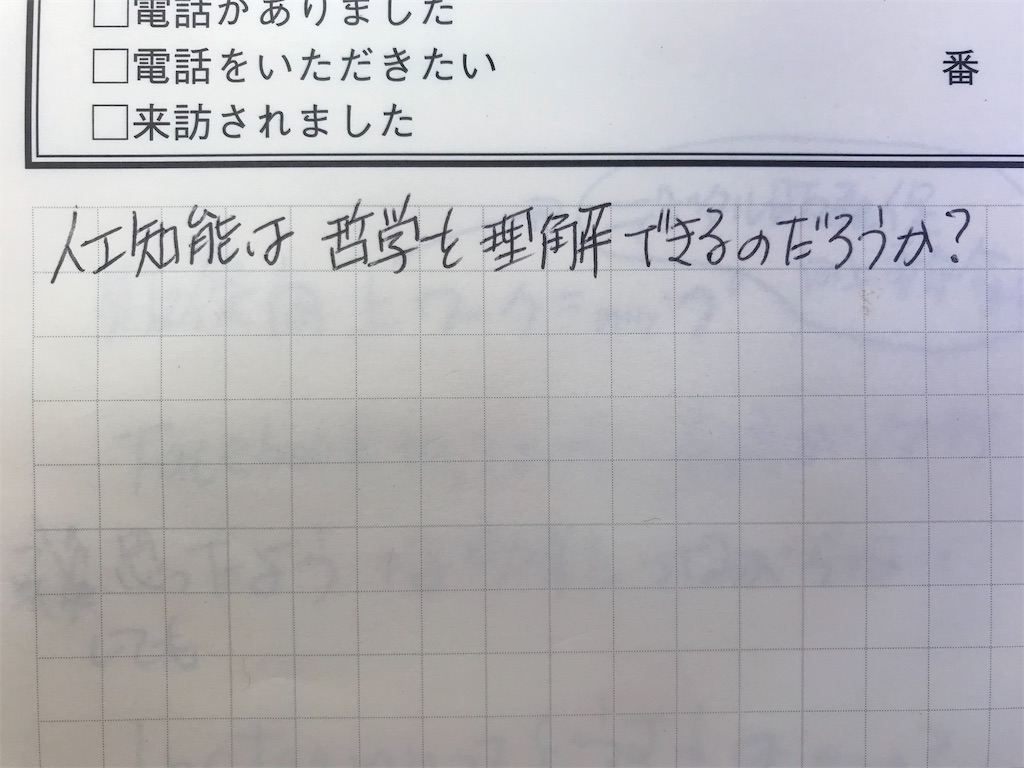 □電話がありました
□電話をいただきたい
番
□来訪されました
人工知能は哲学を理解できるのだろうか?